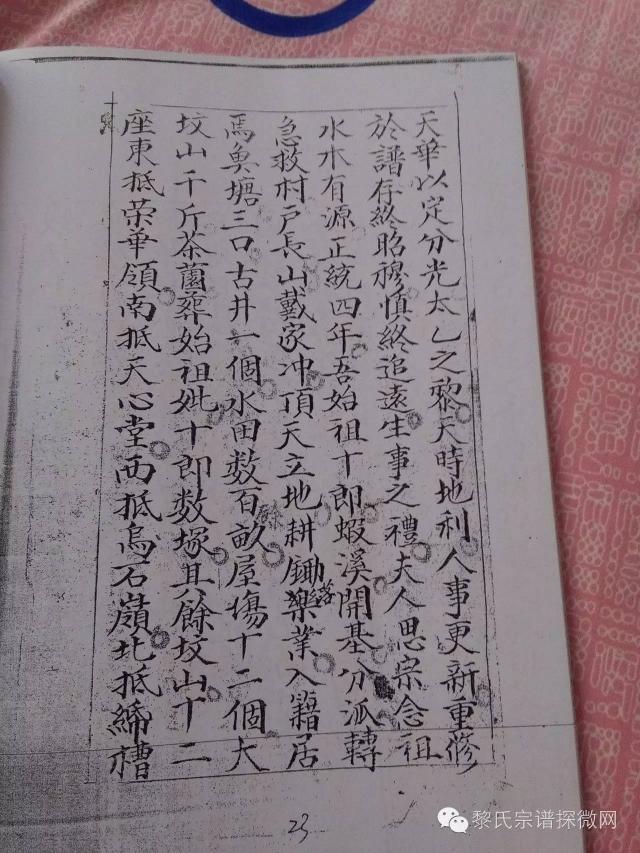 天華以定分光太乙之黎天時地利人事更新重修
於譜存終昭穆慎終追遠生事之禮夫人思宗念祖
水木有源正統四年吾始祖十郎蝦溪開基分派轉
急救村户長山戴家冲頂天立地耕鋤樂業落入籍居
焉奠塘三口古井一個水田数百畝屋塲十二個大
坟山千斤茶薗葬始祖妣十郎数塚其餘坟山十二
座東抵荣華領南抵天心堂西抵烏石嶺北抵締槽
23
黎氏宗谱探微网